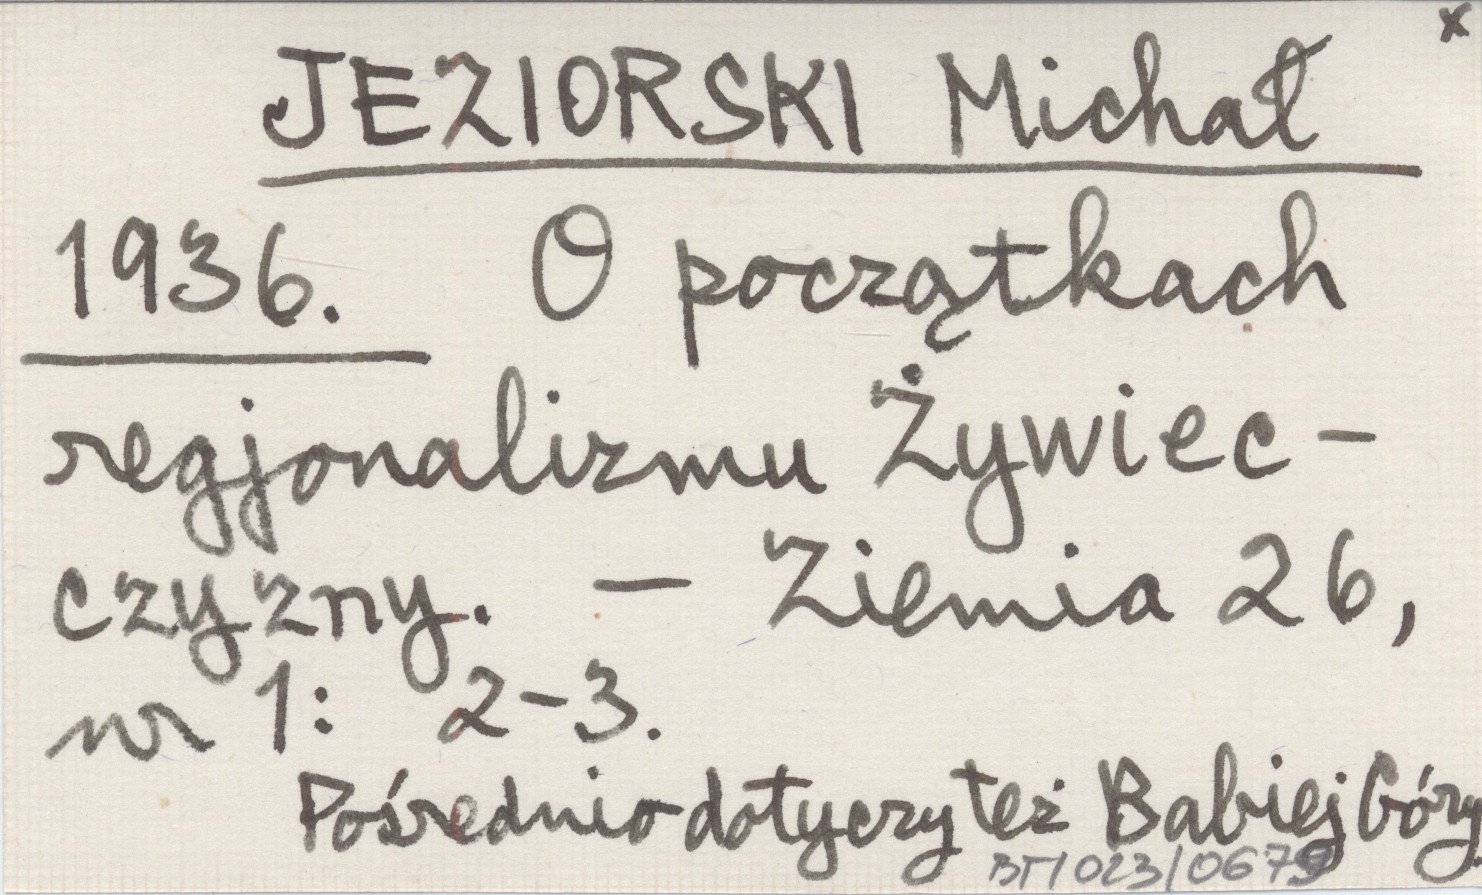 x
JEZIORSKI Michał
1936. O początkach
regjonalizmu Żywiec-
czyzny. — Ziemia 26,
nr 1: 2-3.
Pośrednio dotyczy też Babiej Góry